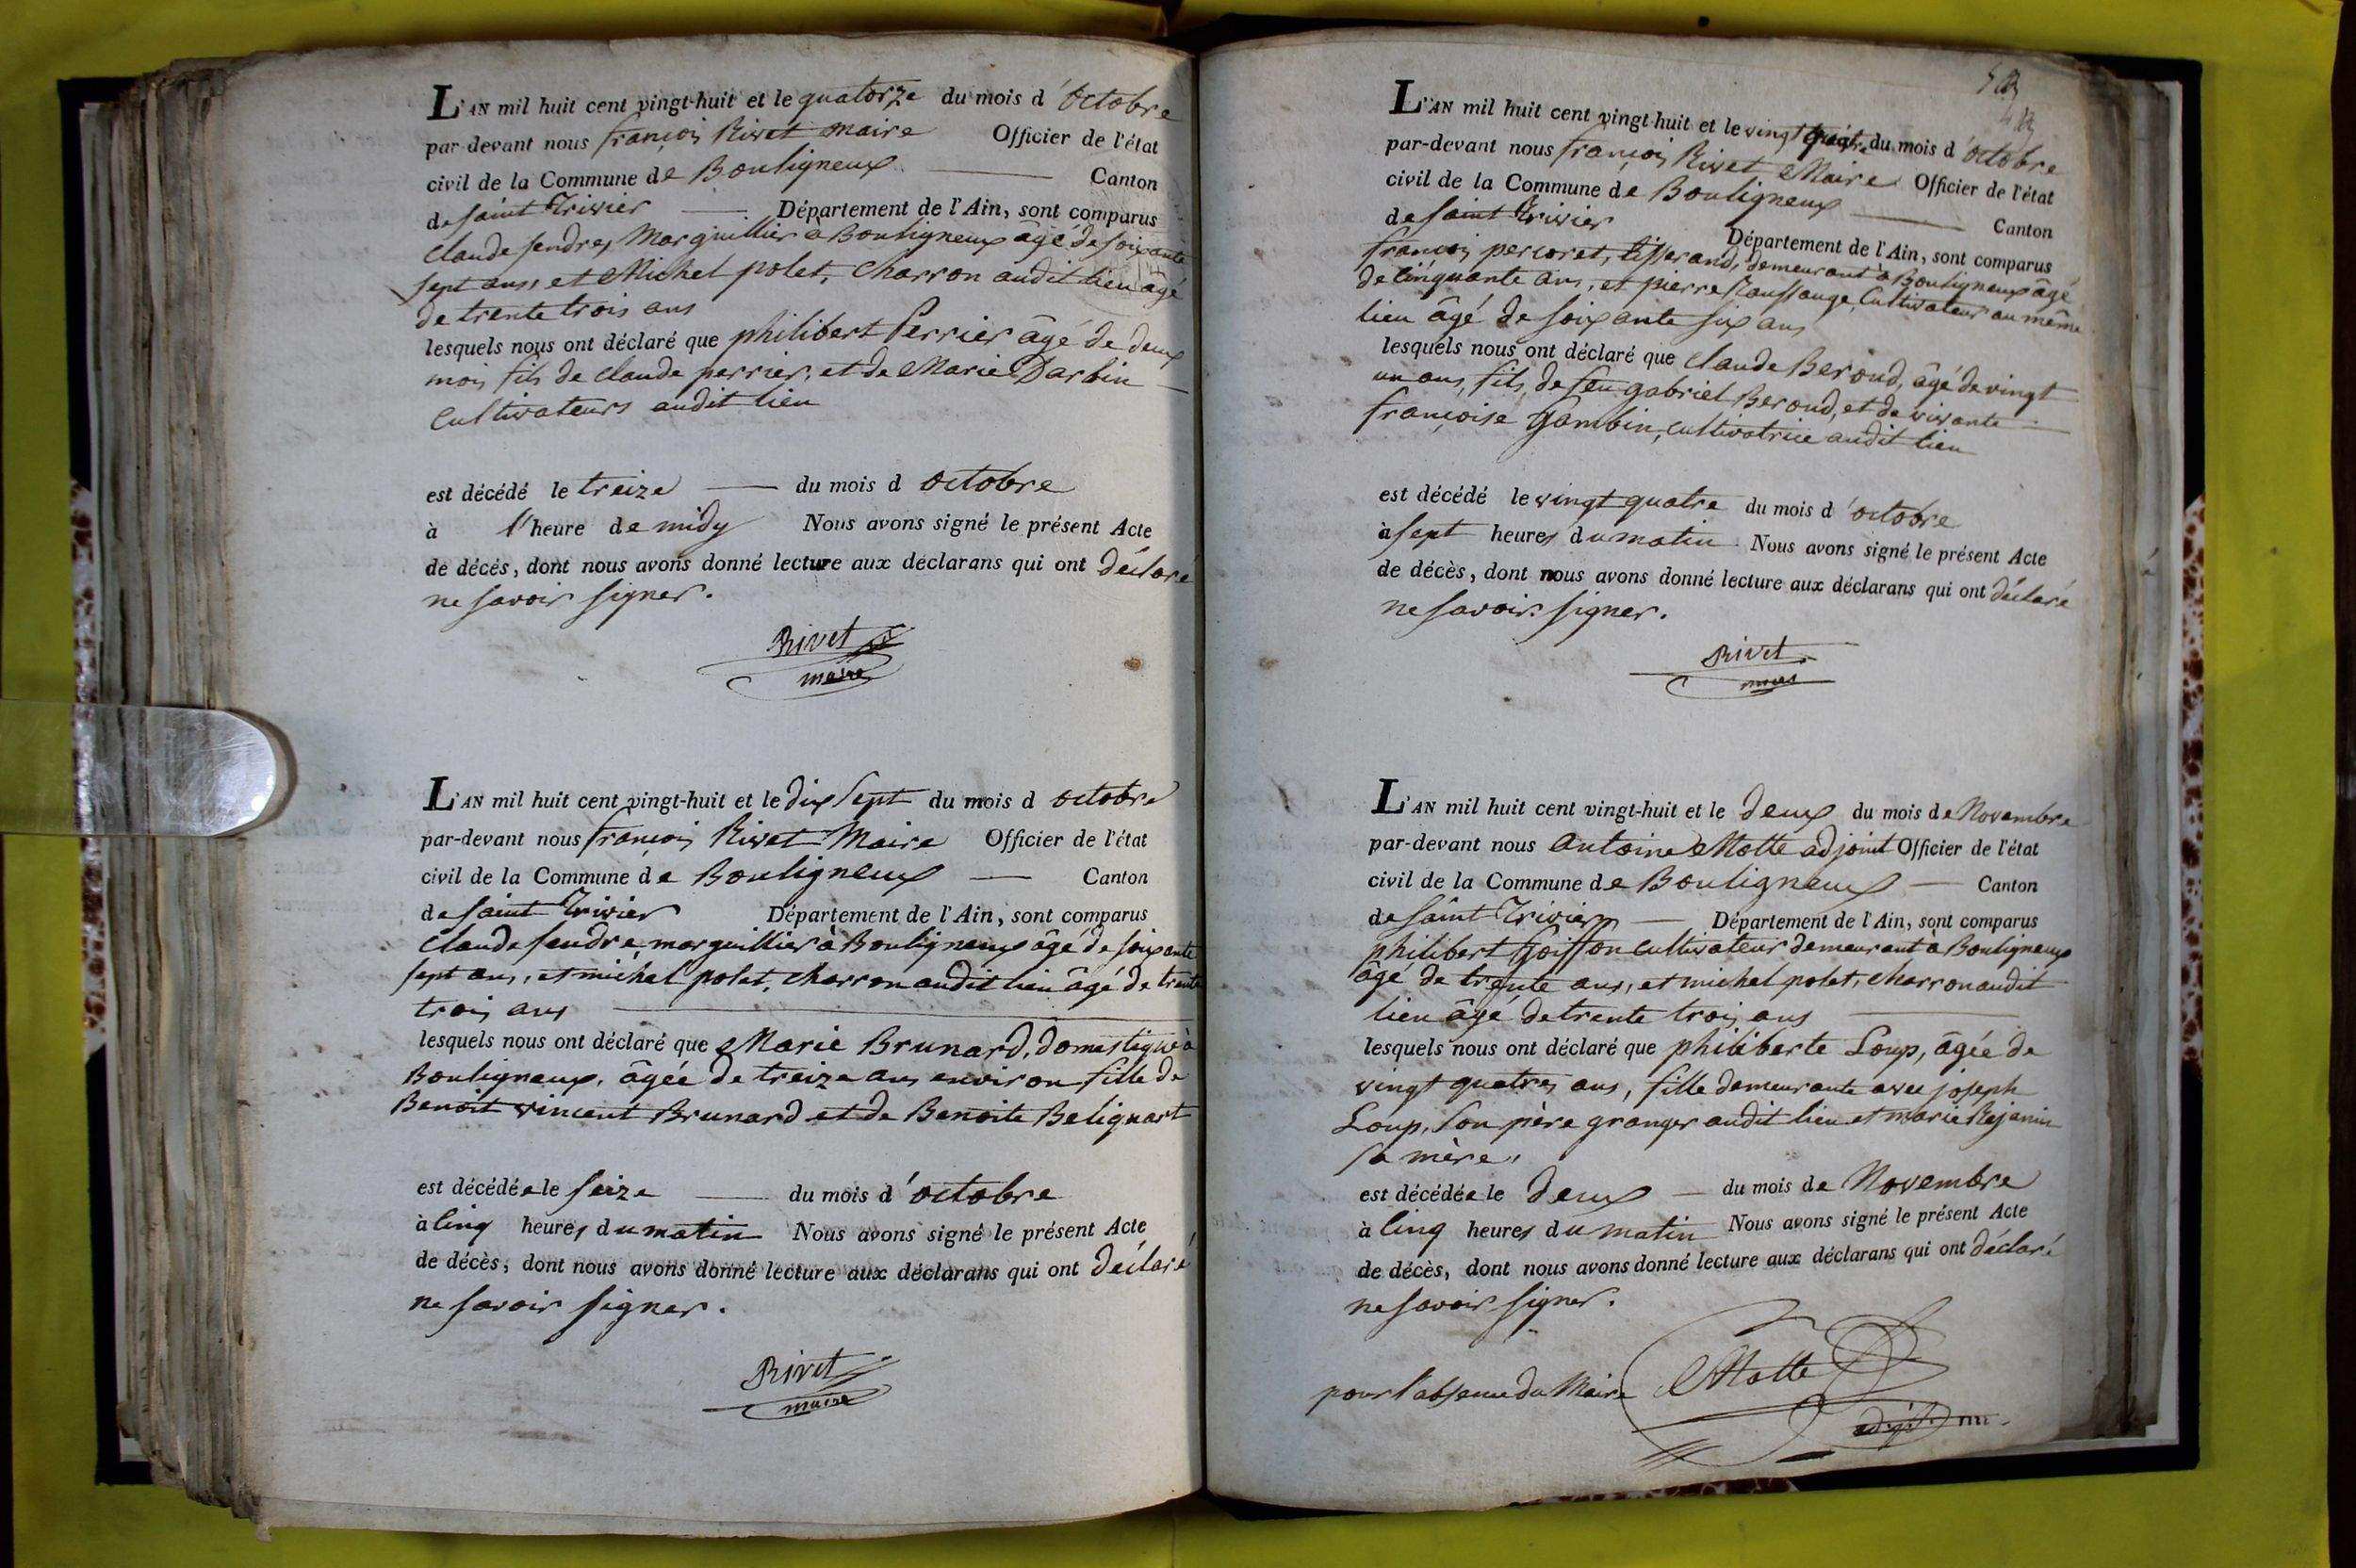 L'AN mil huit cent vingt-huit et le quatorze du mois d'octobre
par-devant nous françois Rivet maire Officier de l'état
civil de la Commune de Bouligneux Canton
de saint Trivier Département de l'Ain, sont comparus
claude sendre, Marguillier à Bouligneux âgé de soixante
sept ans, et Michel polet, charron audit lieu âgé
de trente trois ans
lesquels nous ont déclaré que philibert Perrier âgé de deux
mois fils de claude perrier, et de Marie Darbin
cultivateurs audit lieu
est décédé le treize du mois d octobre
à l'heure de midy Nous avons signé le présent Acte
de décès, dont nous avons donné lecture aux déclarans qui ont déclaré
ne savoir signer.
Rivet
maire
L'AN mil huit cent vingt-huit et le dix sept du mois d octobre
par-devant nous françois Rivet Maire Officier de l'état
civil de la Commune de Bouligneux Canton
de saint Trivier Département de l'Ain, sont comparus
claude sendre, marguillier à Bouligneux âgé de soixante
sept ans, et michel polet, charron audit lieu âgé de trente
trois ans
lesquels nous ont déclaré que Marie Brunard, domestique à
Bouligneux, âgée de treize ans environ fille de
Benoit vincent Brunard et de Benoite Beliguart
est décédée le seize du mois d'octobre
à cinq heures du matin Nous avons signé le présent Acte
de décès, dont nous avons donné lecture aux déclarans qui ont déclaré
ne savoir signer.
Rivet
maire
L'AN mil huit cent vingt-huit et le vingt quatre du mois d'octobre
par-devant nous françois Rivet Maire Officier de l'état
civil de la Commune de Bouligneux Canton
de saint Trivier Département de l'Ain, sont comparus
françois percoret, tisserand, demeurant à Bouligneux âgé
de cinquante ans, et pierre cultivateur au même
lieu âgé de soixante six ans
lesquels nous ont déclaré que claude Beroud, âgé de vingt
un ans, fils de feu gabriel Beroud, et de vivante
françoise Gambin, cultivatrice audit lieu
est décédé le vingt quatre du mois d'octobre
à sept heures du matin Nous avons signé le présent Acte
de décès, dont nous avons donné lecture aux déclarans qui ont déclaré
ne savoir signer.
Rivet
maire
L'AN mil huit cent vingt-huit et le deux du mois de Novembre
par-devant nous Antoine Motte adjoint Officier de l'état
civil de la Commune de Bouligneux Canton
de saint Trivier Département de l'Ain, sont comparus
philibert Goiffon cultivateur demeurant à Bouligneux
âgé de trente ans, et michel polet, charron audit
lieu âgé de trente trois ans
lesquels nous ont déclaré que philiberte Loup, âgée de
vingt quatres ans, fille demeurante avec joseph
Loup, son père granger audit lieu et marie Rejanin
sa mère,
est décédée le deux du mois de Novembre
à cinq heures du matin Nous avons signé le présent Acte
de décès, dont nous avons donné lecture aux déclarans qui ont déclaré
ne savoir signer.
pour l'absence du Maire Motte